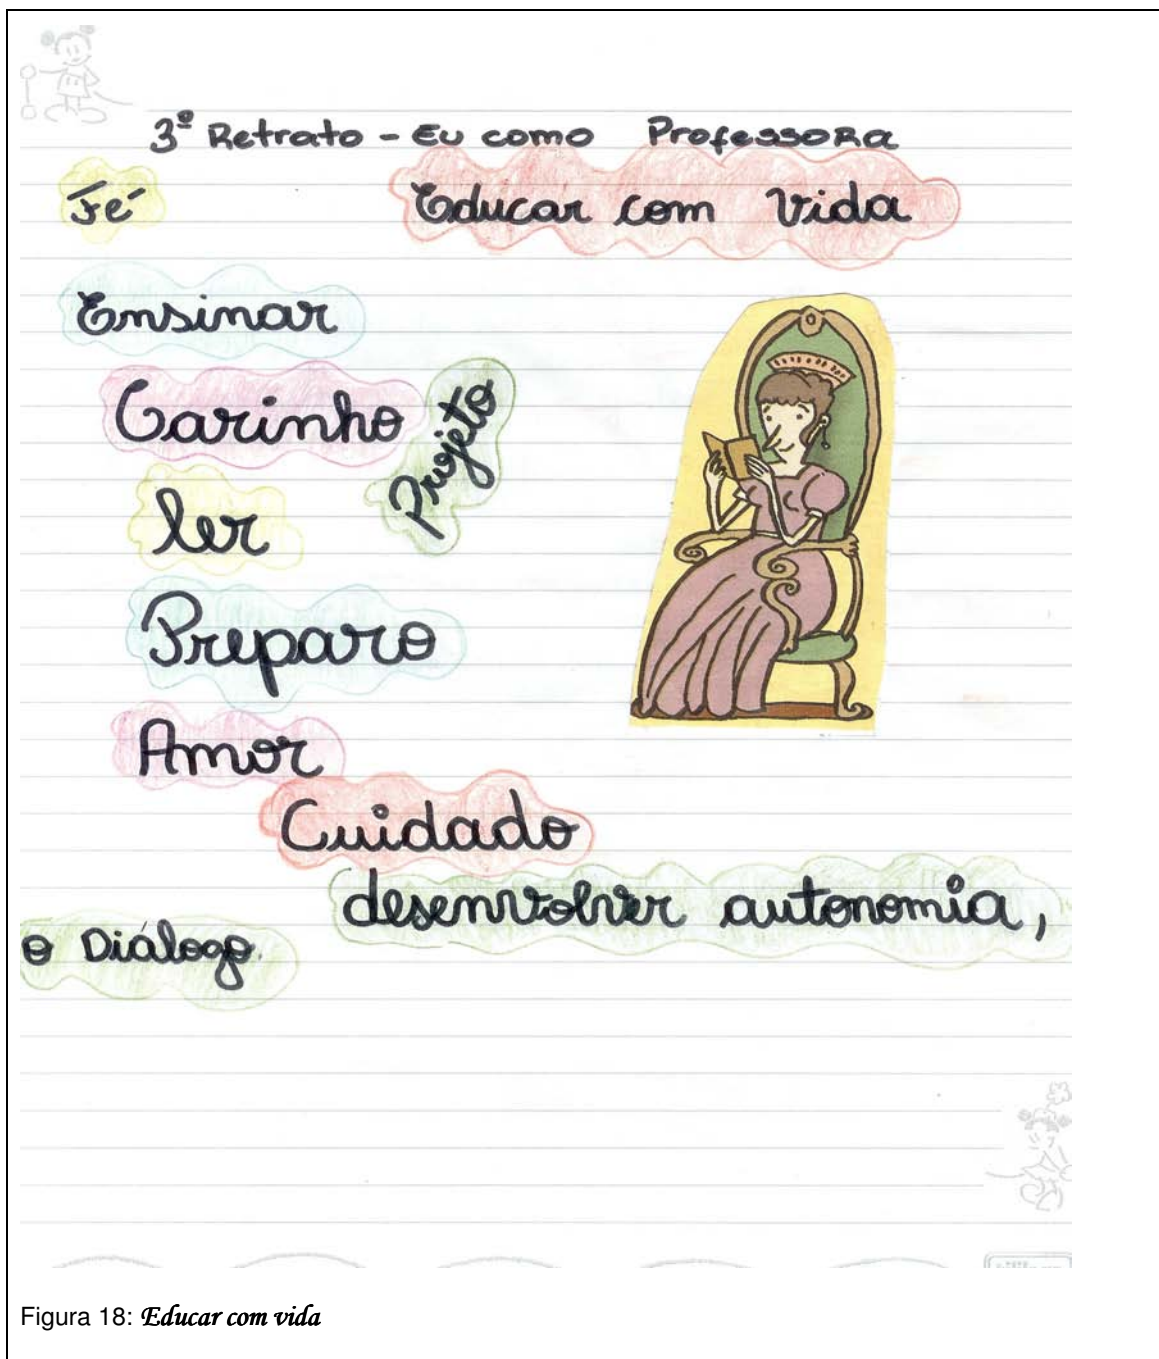 3º Retrato - Eu como Professora
Fé
Educar com Vida
Ensinar
Carinho
Projeto
ler
Preparo
Amor
Cuidado
desenvolver autonomia,
o Diálogo.
Figura 18: Educar com vida